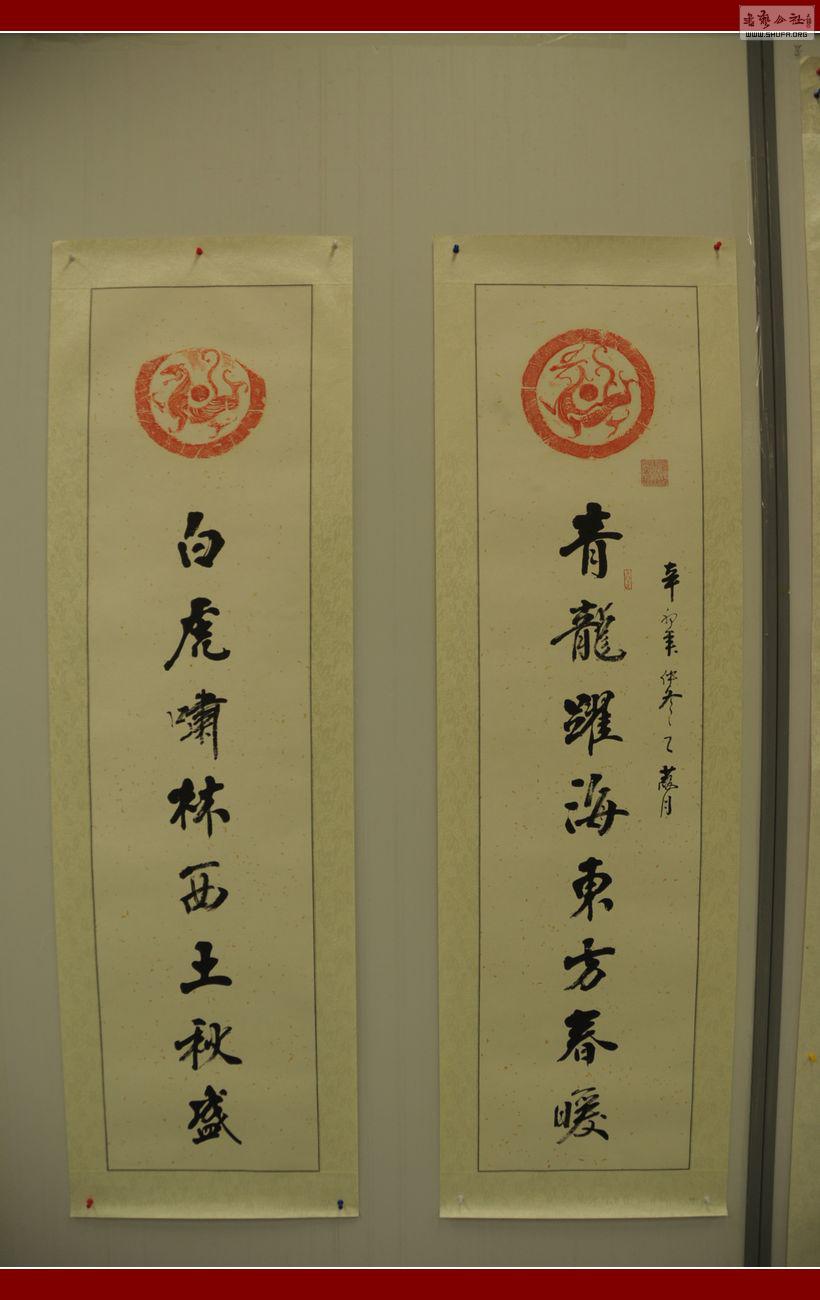 青龍躍海東方春暖
辛卯年仲冬之
白虎嘯林西土秋盛
WWW.SHUFA.ORG